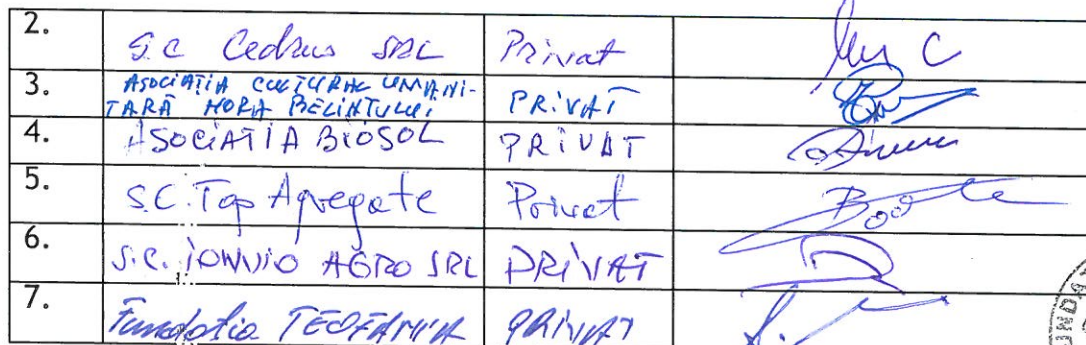 2. S.C Cedrus SRL Privat
3. ASOCIAȚIA CULTURAL UMANI-
TARĂ HORA BELINȚULUI PRIVAT
4. ASOCIATIA BIOSOL PRIVAT
5. S.C. Top Agregate Privat
6. S.C. IONVIO AGRO SRL PRIVAT
7. Fundatia TEOFANIA PRIVAT